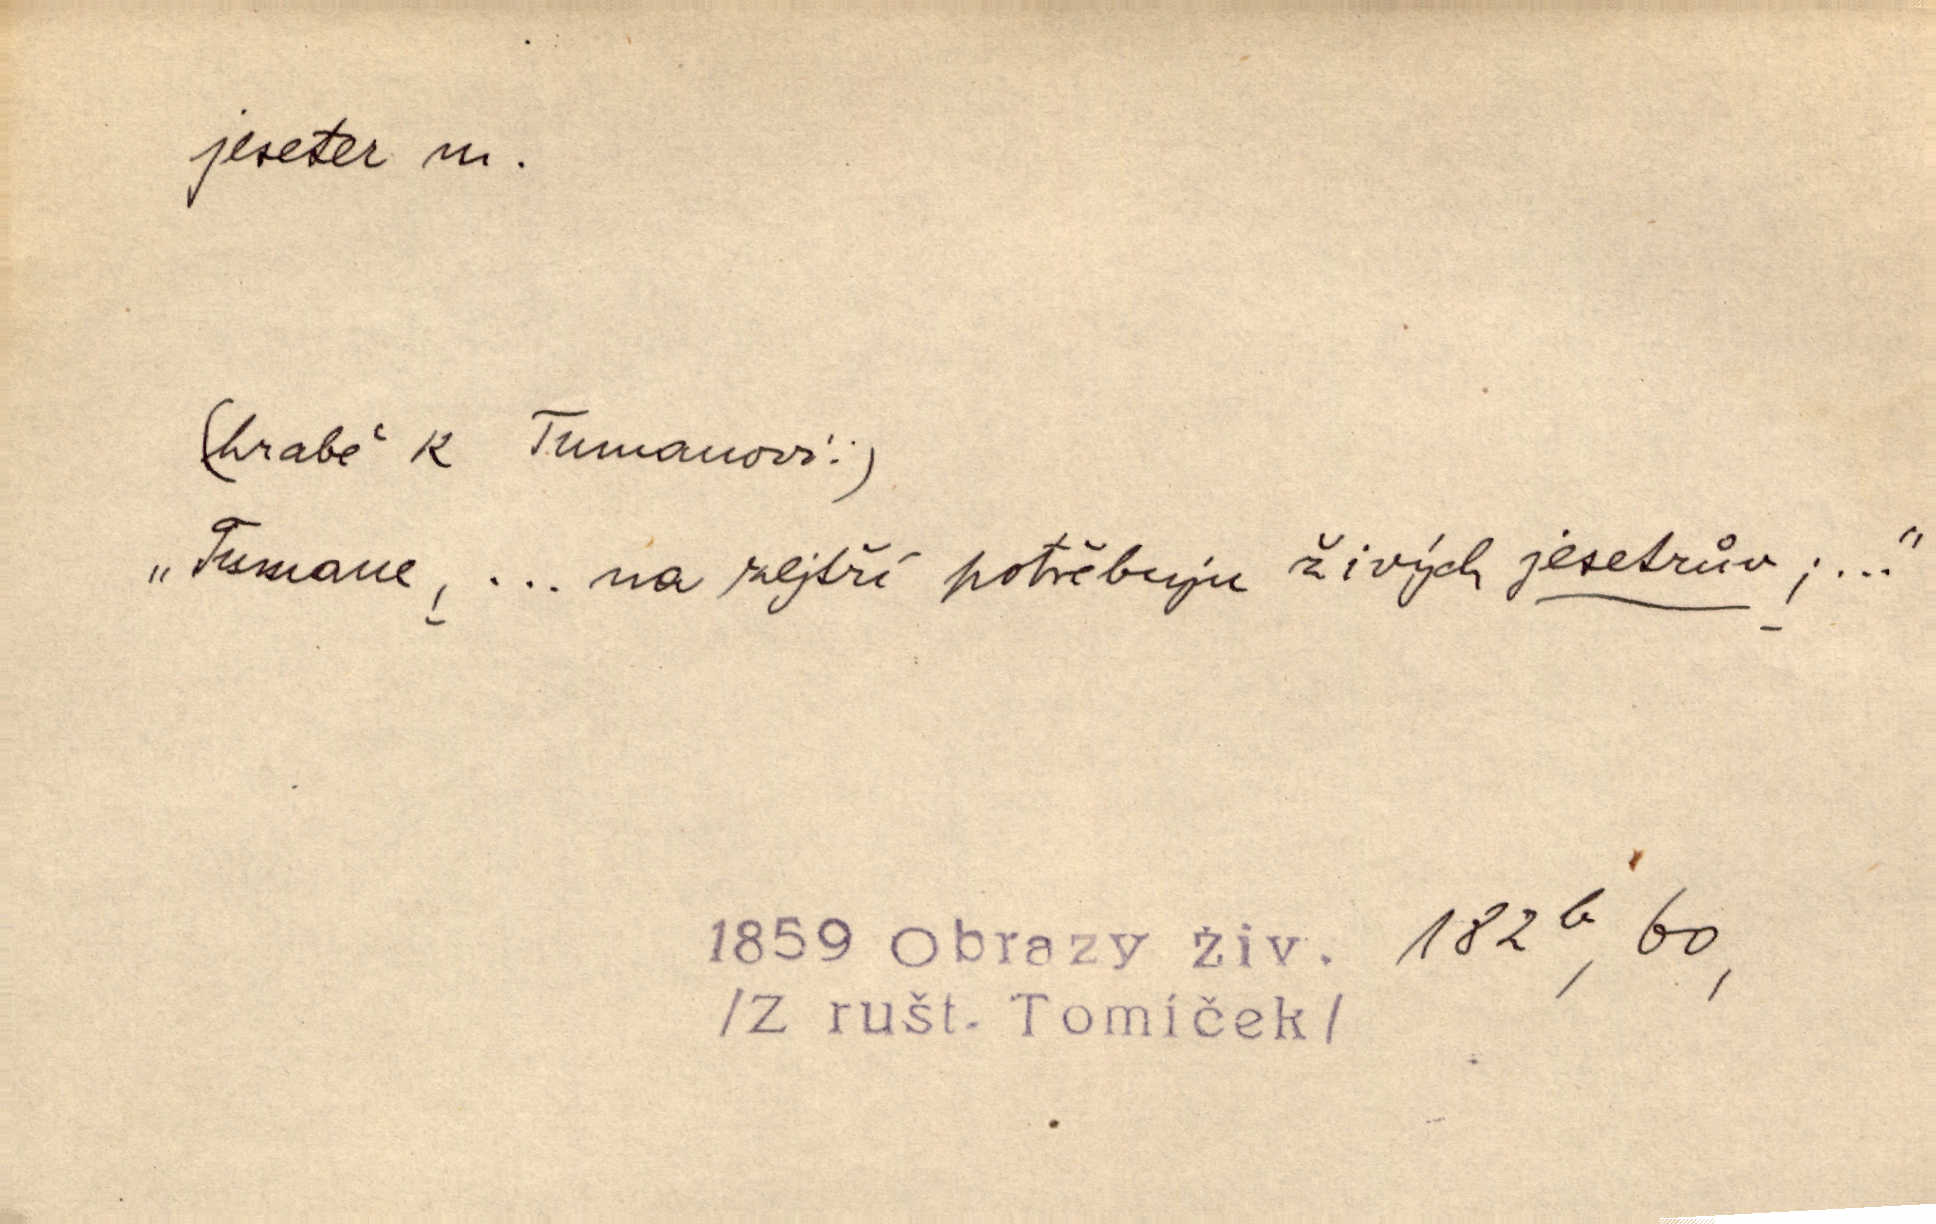 jeseter m.
(hrabě k Tumanovi:)
„Tumane, ... na zejtří potřebuju živých jesetrův; ..."
1859 Obrazy živ. 182b, 60,
/Z rušt. Tomíček/